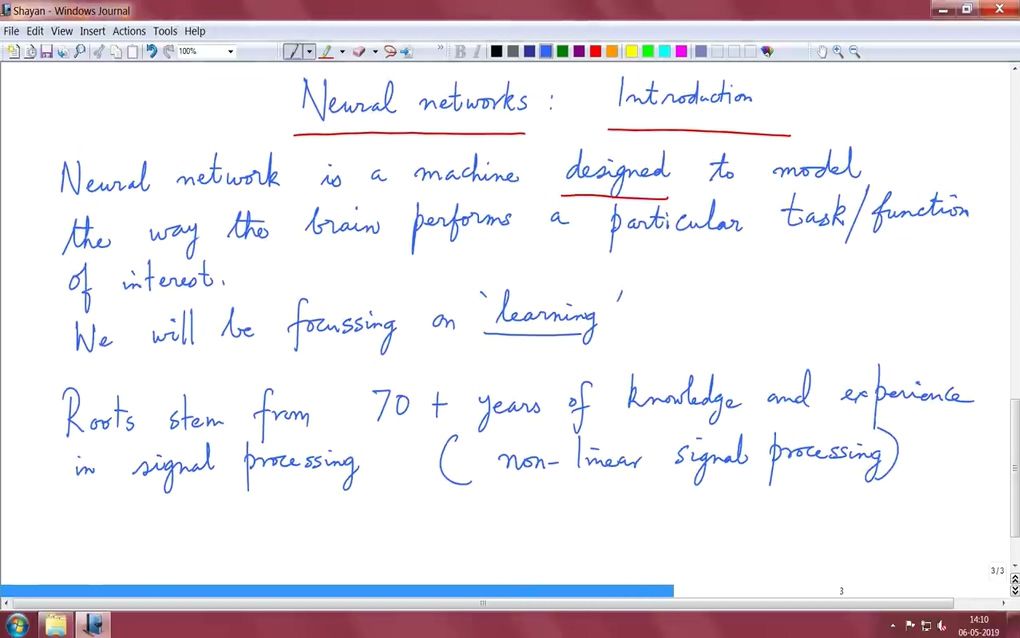 Shayan - Windows Journal
File Edit View Insert Actions Tools Help
100%
Neural networks : Introduction
Neural network is a machine designed to model
the way the brain performs a particular task/function
of interest.
We will be focussing on 'learning'
Roots stem from 70 + years of knowledge and experience
in signal processing ( non-linear signal processing)
3/3
3
14:10
06-05-2019